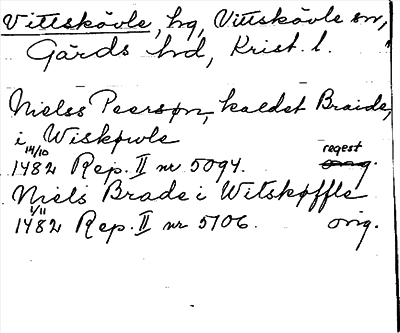 Vittskövle, hg, Vittskövle sn,
Gärds hd, Krist. l.
Nielss Peerssøn, kaldet Braide,
i Wiskøwle
14/10 1482 Rep. II nr 5094. regest
orig.
Niels Brade i Witskøffle
1/11 1482 Rep. II nr 5106. orig.